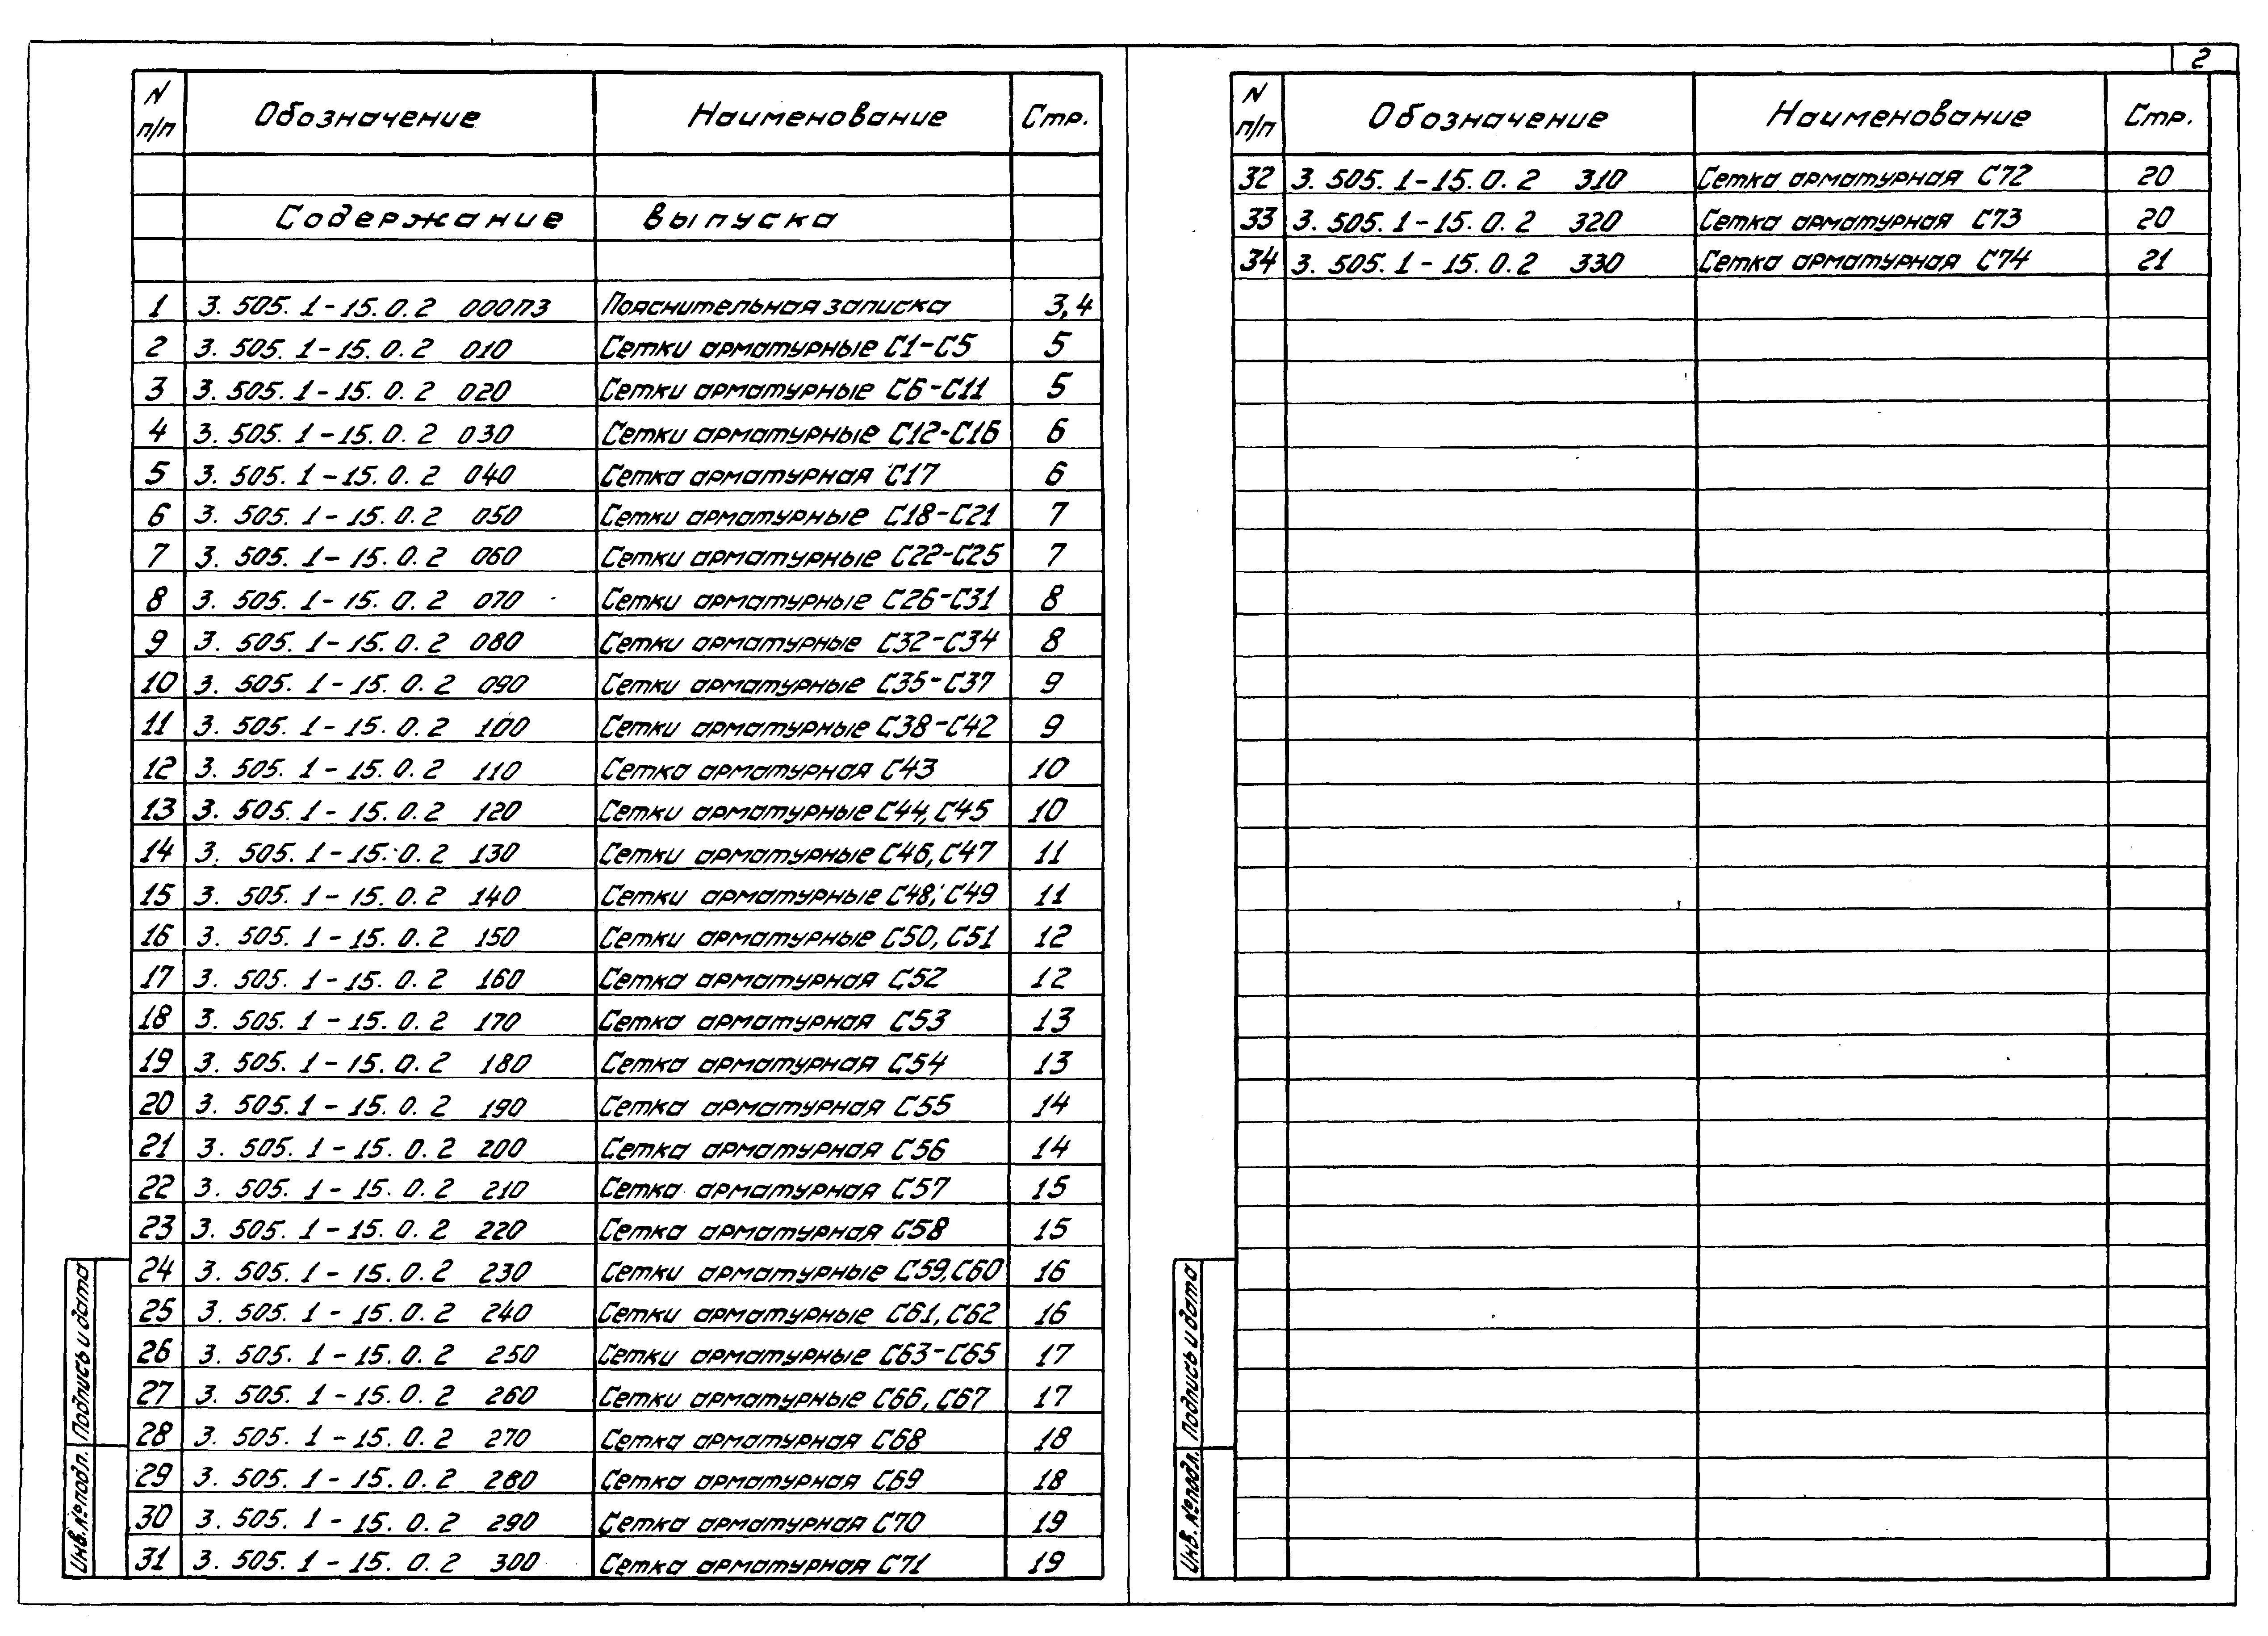 2
N п/п Обозначение Наименование Стр.
Содержание выпуска
1 3.505.1-15.0.2 000ПЗ Пояснительная записка 3,4
2 3.505.1-15.0.2 010 Сетки арматурные С1-С5 5
3 3.505.1-15.0.2 020 Сетки арматурные С6-С11 5
4 3.505.1-15.0.2 030 Сетки арматурные С12-С16 6
5 3.505.1-15.0.2 040 Сетка арматурная С17 6
6 3.505.1-15.0.2 050 Сетки арматурные С18-С21 7
7 3.505.1-15.0.2 060 Сетки арматурные С22-С25 7
8 3.505.1-15.0.2 070 Сетки арматурные С26-С31 8
9 3.505.1-15.0.2 080 Сетки арматурные С32-С34 8
10 3.505.1-15.0.2 090 Сетки арматурные С35-С37 9
11 3.505.1-15.0.2 100 Сетки арматурные С38-С42 9
12 3.505.1-15.0.2 110 Сетка арматурная С43 10
13 3.505.1-15.0.2 120 Сетки арматурные С44, С45 10
14 3.505.1-15.0.2 130 Сетки арматурные С46, С47 11
15 3.505.1-15.0.2 140 Сетки арматурные С48, С49 11
16 3.505.1-15.0.2 150 Сетки арматурные С50, С51 12
17 3.505.1-15.0.2 160 Сетка арматурная С52 12
18 3.505.1-15.0.2 170 Сетка арматурная С53 13
19 3.505.1-15.0.2 180 Сетка арматурная С54 13
20 3.505.1-15.0.2 190 Сетка арматурная С55 14
21 3.505.1-15.0.2 200 Сетка арматурная С56 14
22 3.505.1-15.0.2 210 Сетка арматурная С57 15
23 3.505.1-15.0.2 220 Сетка арматурная С58 15
24 3.505.1-15.0.2 230 Сетки арматурные С59, С60 16
25 3.505.1-15.0.2 240 Сетки арматурные С61, С62 16
26 3.505.1-15.0.2 250 Сетки арматурные С63-С65 17
27 3.505.1-15.0.2 260 Сетки арматурные С66, С67 17
28 3.505.1-15.0.2 270 Сетка арматурная С68 18
29 3.505.1-15.0.2 280 Сетка арматурная С69 18
30 3.505.1-15.0.2 290 Сетка арматурная С70 19
31 3.505.1-15.0.2 300 Сетка арматурная С71 19
Подпись и дата
Инв. № подл.
N п/п Обозначение Наименование Стр.
32 3.505.1-15.0.2 310 Сетка арматурная С72 20
33 3.505.1-15.0.2 320 Сетка арматурная С73 20
34 3.505.1-15.0.2 330 Сетка арматурная С74 21
Подпись и дата
Инв. № подл.